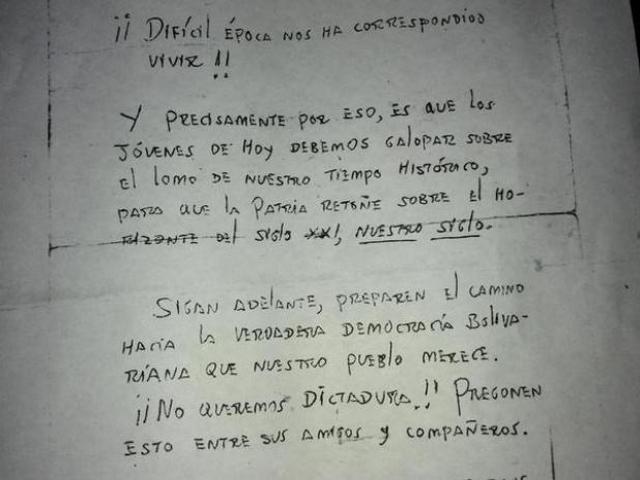 ¡¡ DIFÍCIL ÉPOCA NOS HA CORRESPONDIDO
VIVIR !!
Y PRECISAMENTE POR ESO, ES QUE LOS
JÓVENES DE HOY DEBEMOS GALOPAR SOBRE
El lOMO DE NUESTRO TIEMPO HISTÓRICO,
PARA QUE lA PATRIA RETOÑE SOBRE El HO-
RIZONTE DEl SIGlO XXI, NUESTRO SIGlO.
SIGAN ADELANTE, PREPAREN El CAMINO
HACIA lA VERDADERA DEMOCRACÍA BOLIVA-
RIANA QUE NUESTRO PUEBlO MERECE.
¡¡NO QUEREMOS DICTADURA!! PREGONEN
ESTO ENTRE SUS AMIGOS Y COMPAÑEROS.